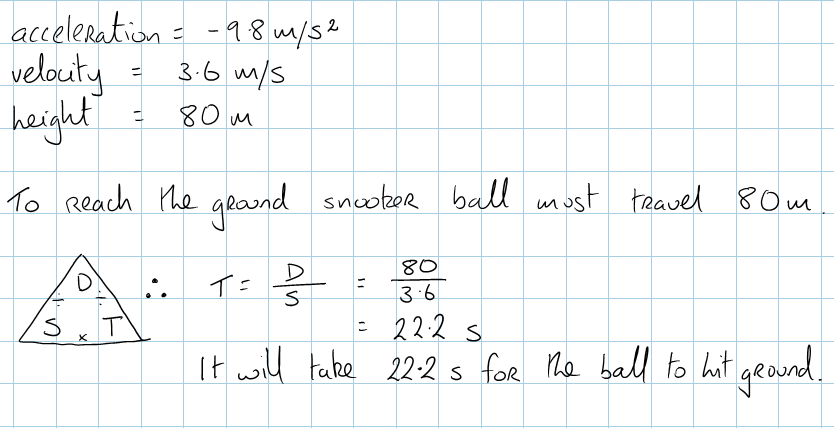 acceleration = -9.8 m/s²
velocity = 3.6 m/s
height = 80 m
To reach the ground snooker ball must travel 80m.
D
S × T
÷ ÷
∴ T = D/S = 80/3.6
= 22.2 s
It will take 22.2 s for the ball to hit ground.